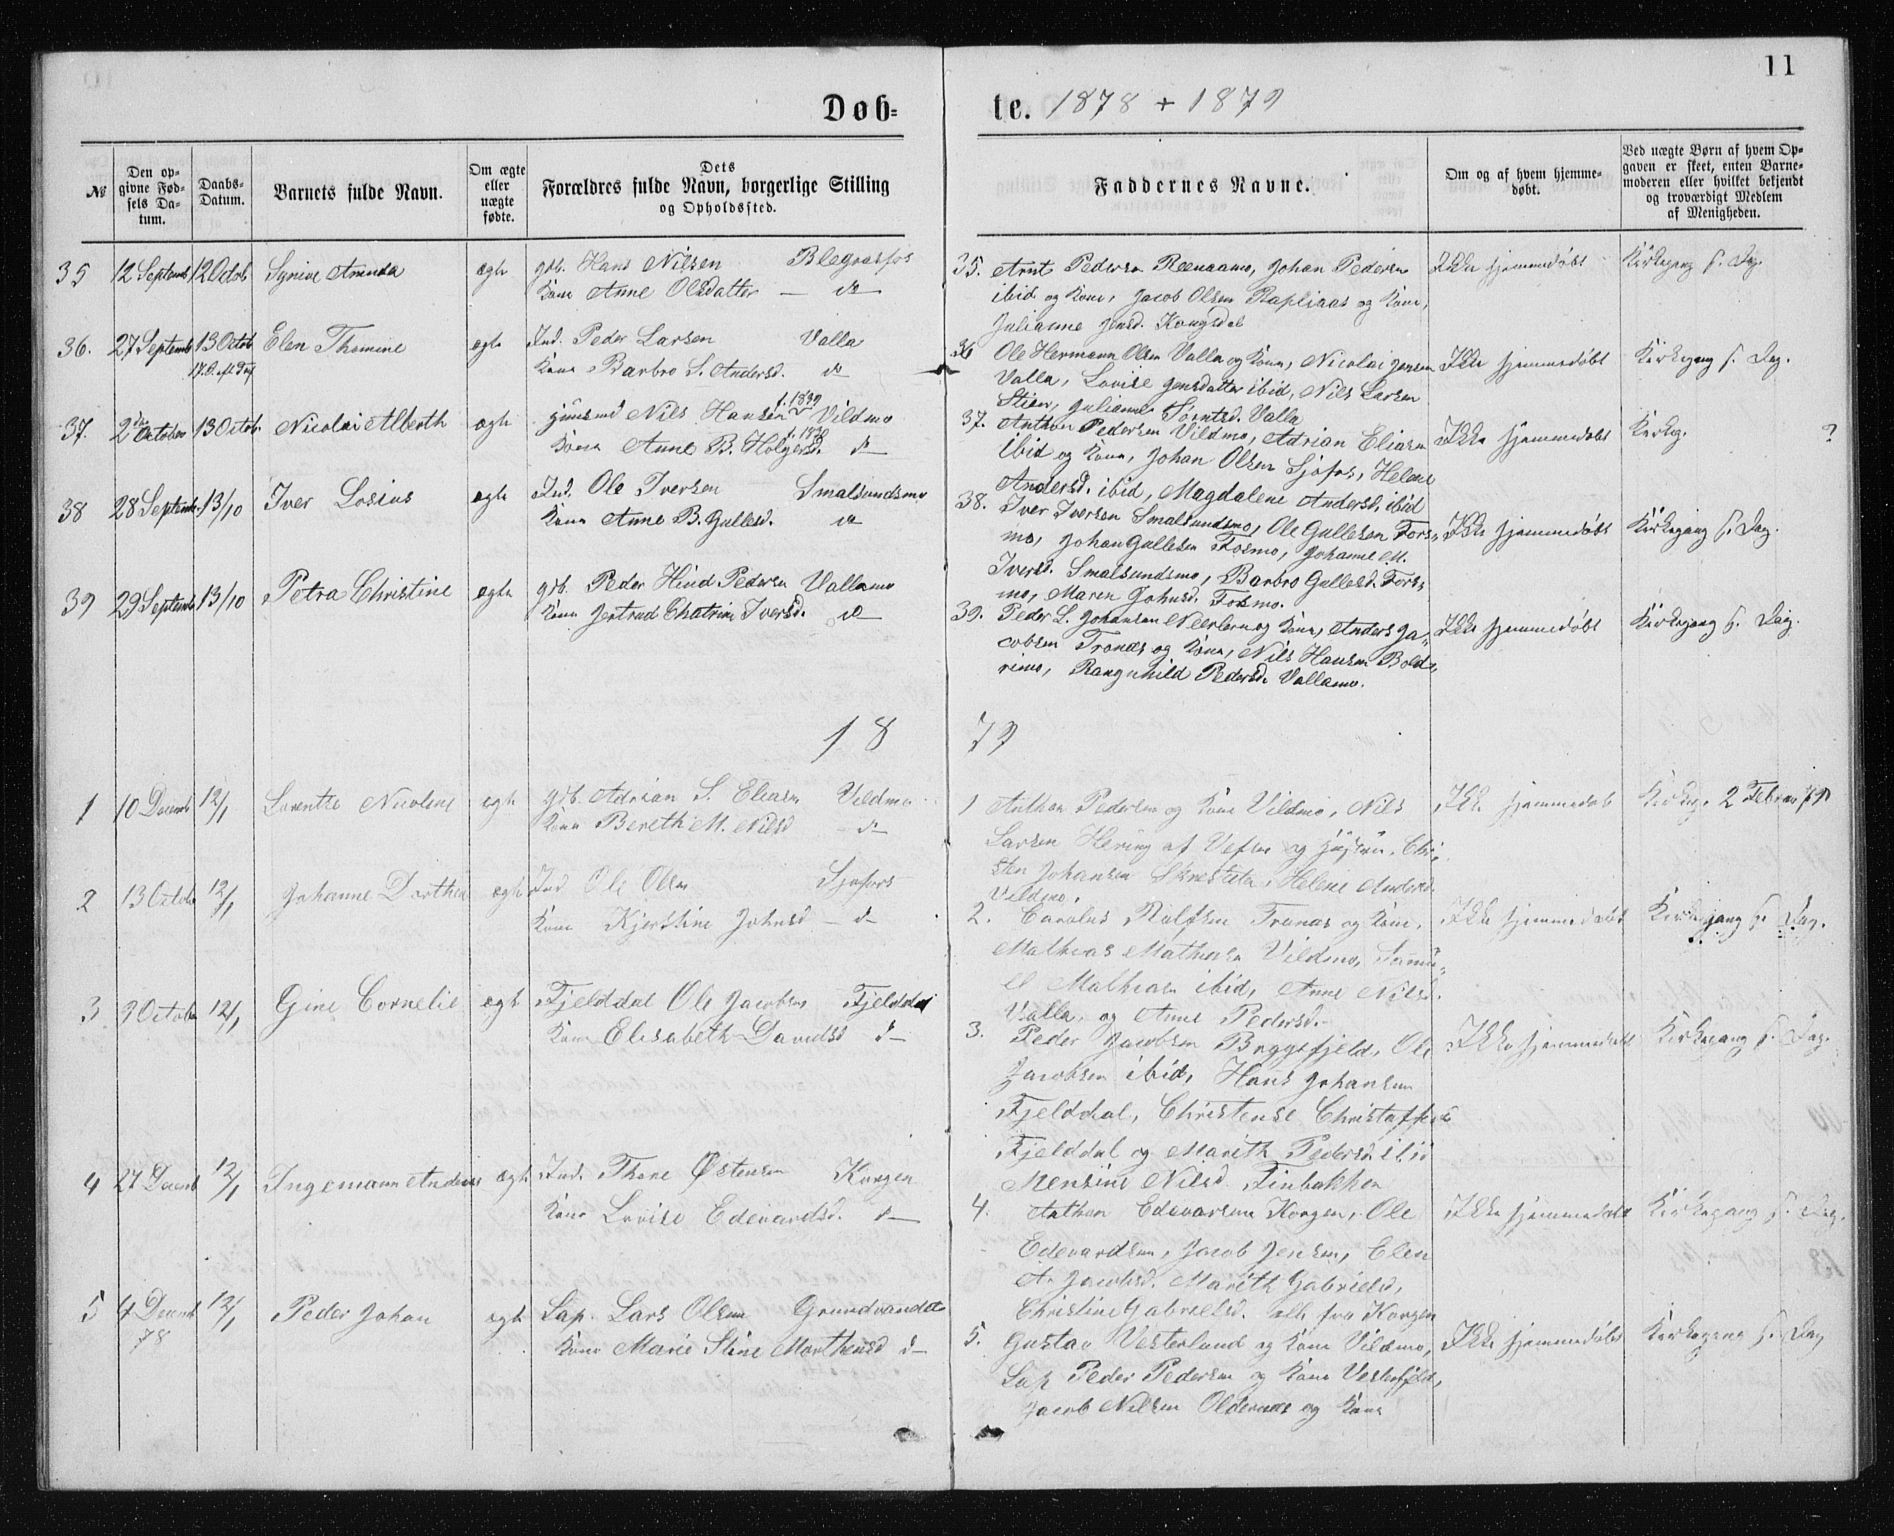 11
Døb=
te. 1878 + 1879
№
Den op-
givne Fød-
sels Da-
tum.
Daabs-
Datum.
Barnets fulde Navn.
Om ægte
eller
uægte
fødte.
Dets
Forældres fulde Navn, borgerlige Stilling
og Opholdssted.
Faddernes Navne.
Om og af hvem hjemme-
døbt.
Ved uægte Børn af hvem Op-
gaven er skeet, enten Barne-
moderen eller hvilket bekjendt
og troværdigt Medlem
af Menigheden.
35 12 Septemb 12 Octob Synive Amanda ægte Hans Nilsen
Kone Anne Olsdatter — do —
35. Arnt Pedersen Johan Pedersen
ibid og Kone, Jacob Olsen og Kone,
Julianne Jensd. Kongsdal
Ikke hjemmedøbt Kirkegang s. Dag.
36. 27 Septemb 13 Octob Elen Thomine ægte Ind. Peder Larsen Valla
Kone Barbro S. Andersd. do
36 Ole Hermann Olsen Valla og Kone, Nicolai Jensen
Valla, Lovise Jensdatter ibid, Nils Larsen
Stien, Julianne Valla
Ikke hjemmedøbt Kirkegang s. Dag.
37. 2den October 13 Octob. Nicolai Alberth ægte Husmd Nils Hansen f. 1839 Vildmo
Kone Anne B. Holgersd. do
37. Anthon Pedersen Vildmo, Adrian Eliasen
ibid og Kone, Johan Olsen Sjofos, Helene
Andersd. ibid, Magdalene Andersd. ibid
Ikke hjemmedøbt Kirkeg. ?
38 28 Septemb. 13/10 Iver Losius ægte Ind. Ole Iversen Smalsundmo
Kone Anne B. Gullesd. do
38. Iver Iversen Smalsundmo, Ole Gullesen Fors-
mo, Johan Gullesen Fosmo, Johanne M.
Iversd. Smalsundsmo, Barbro Gullesd. Fors-
mo, Maren Johnsd. Fosmo.
Ikke hjemmedøbt Kirkegang s. Dag.
39 29 Septemb 13/10 Petra Christine ægte gb. Peder Hind Pedersen Vallamo
Kone Jertrud Chatrine Iversd. do
39. Peder L. Johansen og Kone, Anders Ja-
cobsen Tronæs og Kone, Nils Hansen Bold-
rimo, Rangnhild Pedersd. Vallamo.
Ikke hjemmedøbt Kirkegang s. Dag.
18 79
1 10 Decemb 12/1 Lorentze Nicoline ægte gb. Adrian S. Eliasen Vildmo
Kone Bereth M. Nilsd — do —
1 Anthon Pedersen og Kone Vildmo, Nils
Larsen Hering af Vefsen og Hustru, Chri-
sten Johansen Helene Andersd.
Vildmo.
Ikke hjemmedøb Kirkeg. 2 Februar 79
2 13 Octob 12/1 Johanne Dorthea ægte Ind Ole Olsen Sjofors
Kone Kjerstine Johnsd — do —
2. Carolus Rolfsen Tronæs og Kone,
Mathias Mathisen Vildmo, Samu-
el Mathisen ibid, Anne Nilsd.
Valla, og Anne Pedersd.
Ikke hjemmedøbt Kirkegang s. Dag.
3 9 Octob 12/1 Gine Cornelie ægte Fjelddal Ole Jacobsen Fjelddal
Kone Elisabeth Davidsd do
3. Peder Jacobsen Bryggfjeld, Ole
Jacobsen ibid, Hans Johansen
Fjelddal, Christense Christoffersd
Fjelddal og Mareth Pedersd. ibid
Mensine Nilsd. Finbakken
Ikke hjemmedøbt Kirkegang s. Dag.
4 27 Decemb 12/1 Ingemann Andreas ægte Ind. Thore Østensen Korgen
Kone Lovise Edevardsd. do
4. Anthon Edevarsen Korgen, Ole
Edevardsen, Jacob Jensen, Elen
A. Jacobsd. Mareth Gabrielsd,
Christine Gabrielsd. alle fra Korgen
Ikke hjemmedøbt Kirkegang s. Dag.
5 4 Decemb 78 12/1 Peder Johan ægte Lap. Lars Olsen Grundvandet
Kone Marie Stine Morthensd do
5. Gustav Vesterlund og Kone Vildmo,
Lap Peder Pedersen og Kone Vesterfjeld,
Jacob Nilsen Oldernæs og Kone
Ikke hjemmedøbt Kirkegang s. Dag